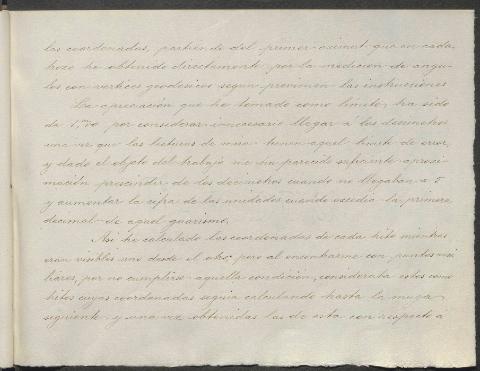 las coordenadas, partiendo del primer azimut que en cada
hoza he obtenido directamente por la medición de ángu-
los con vertices geodesicos segun previenen las instrucciones
La apreciación que he tomado como límite, ha sido
de 1,m50 por considerar innecesario llegar á los decimetros
una vez que las lecturas de mira tienen aquel limite de error
y dado el objeto del trabajo me ha parecido suficiente aproxi-
mación prescindir de los decimetros cuando no llegaban a 5
y aumentar la cifra de las unidades cuando excedia la primera
decimal de aquel guarismo.
Asi he calculado las coordenadas de cada hito mientras
eran visibles uno desde el otro, pero al encontrarme con puntos auxi
liares, por no cumplirse aquella condición, consideraba estos como
hitos cuyas coordenadas seguia calculando hasta la muga
siguiente y una vez obtenidas las de esta con respecto a